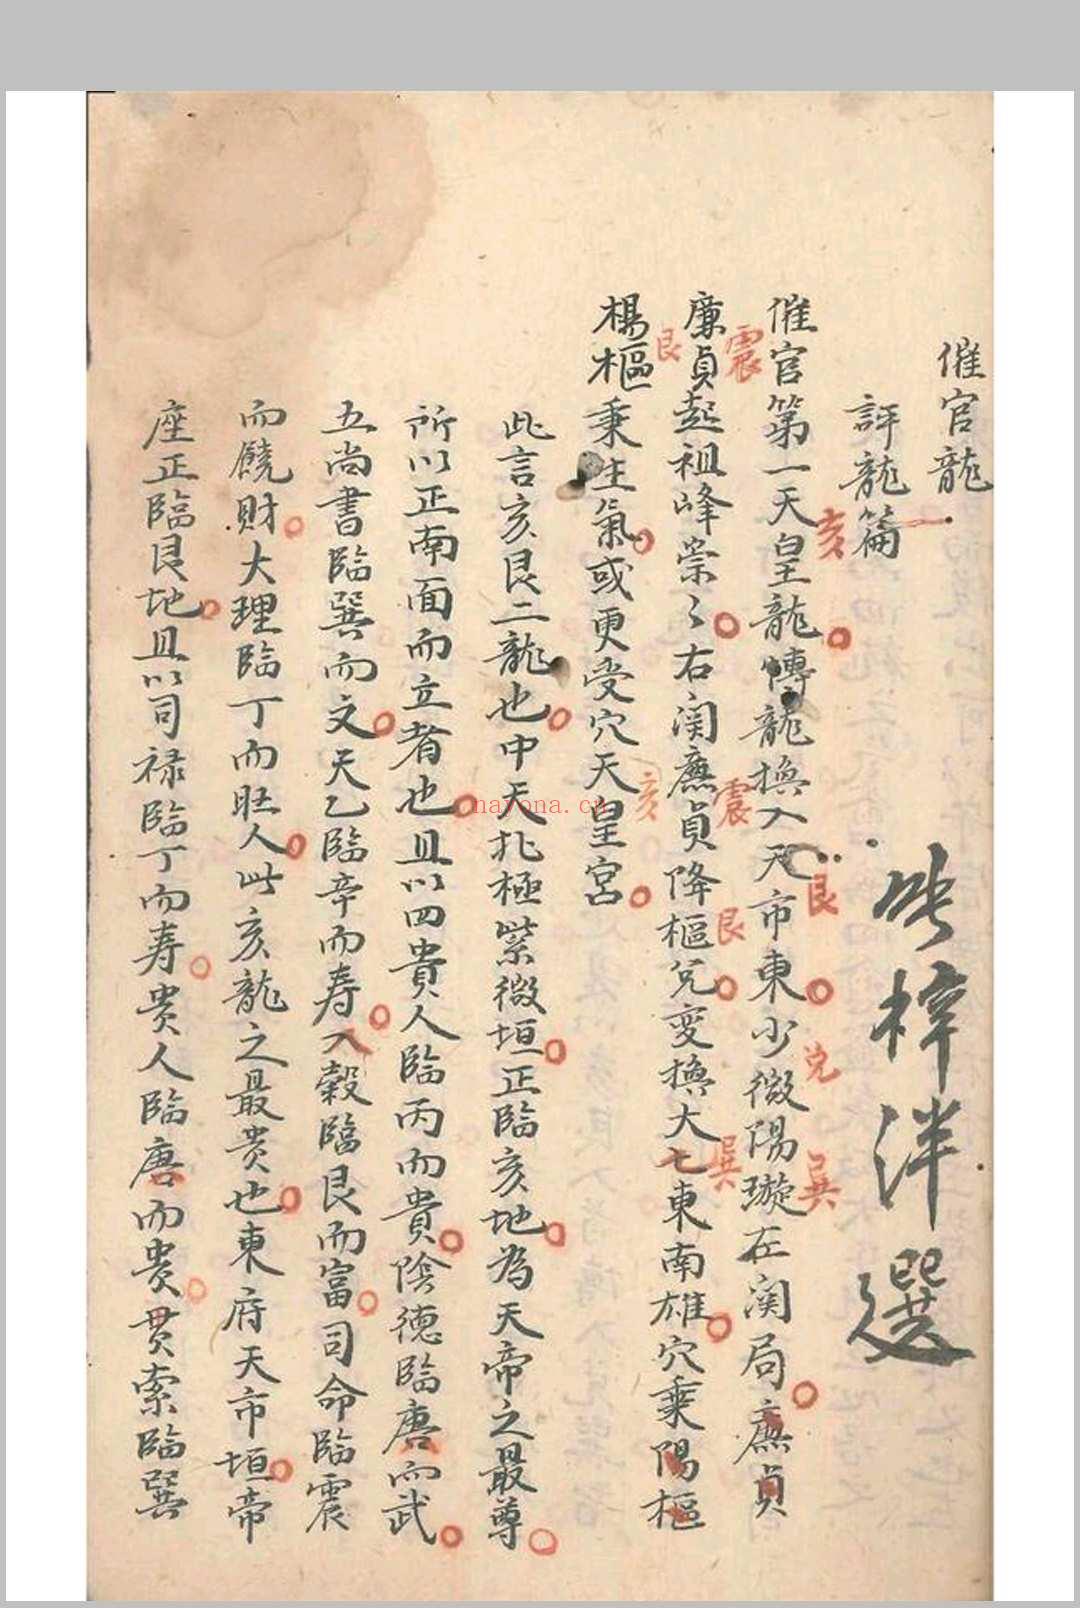 催官龍
評龍篇
梓洋選
催官第一天皇龍博龍換入天市東少微陽璇在関局廉貞
亥
艮
兌
巽
廉貞起祖峰崇〻右関廉貞降樞兌變換大七東南雄穴乗陽樞
震
震
艮
巽
楊樞乗生氣或更受穴天皇宮
艮
亥
此言亥艮二龍也中天北極紫微垣正臨亥地為天帝之最尊
所以正南面而立者也且以四貴人臨丙而貴陰德臨庚而武
五尚書臨巽而文天乙臨辛而寿入榖臨艮而富司命臨震
而饒財大理臨丁而旺人此亥龍之最贵也東府天市垣帝
座正臨艮地且以司禄臨丁而寿贵人臨庚而贵贯索臨巽
nayona.cn